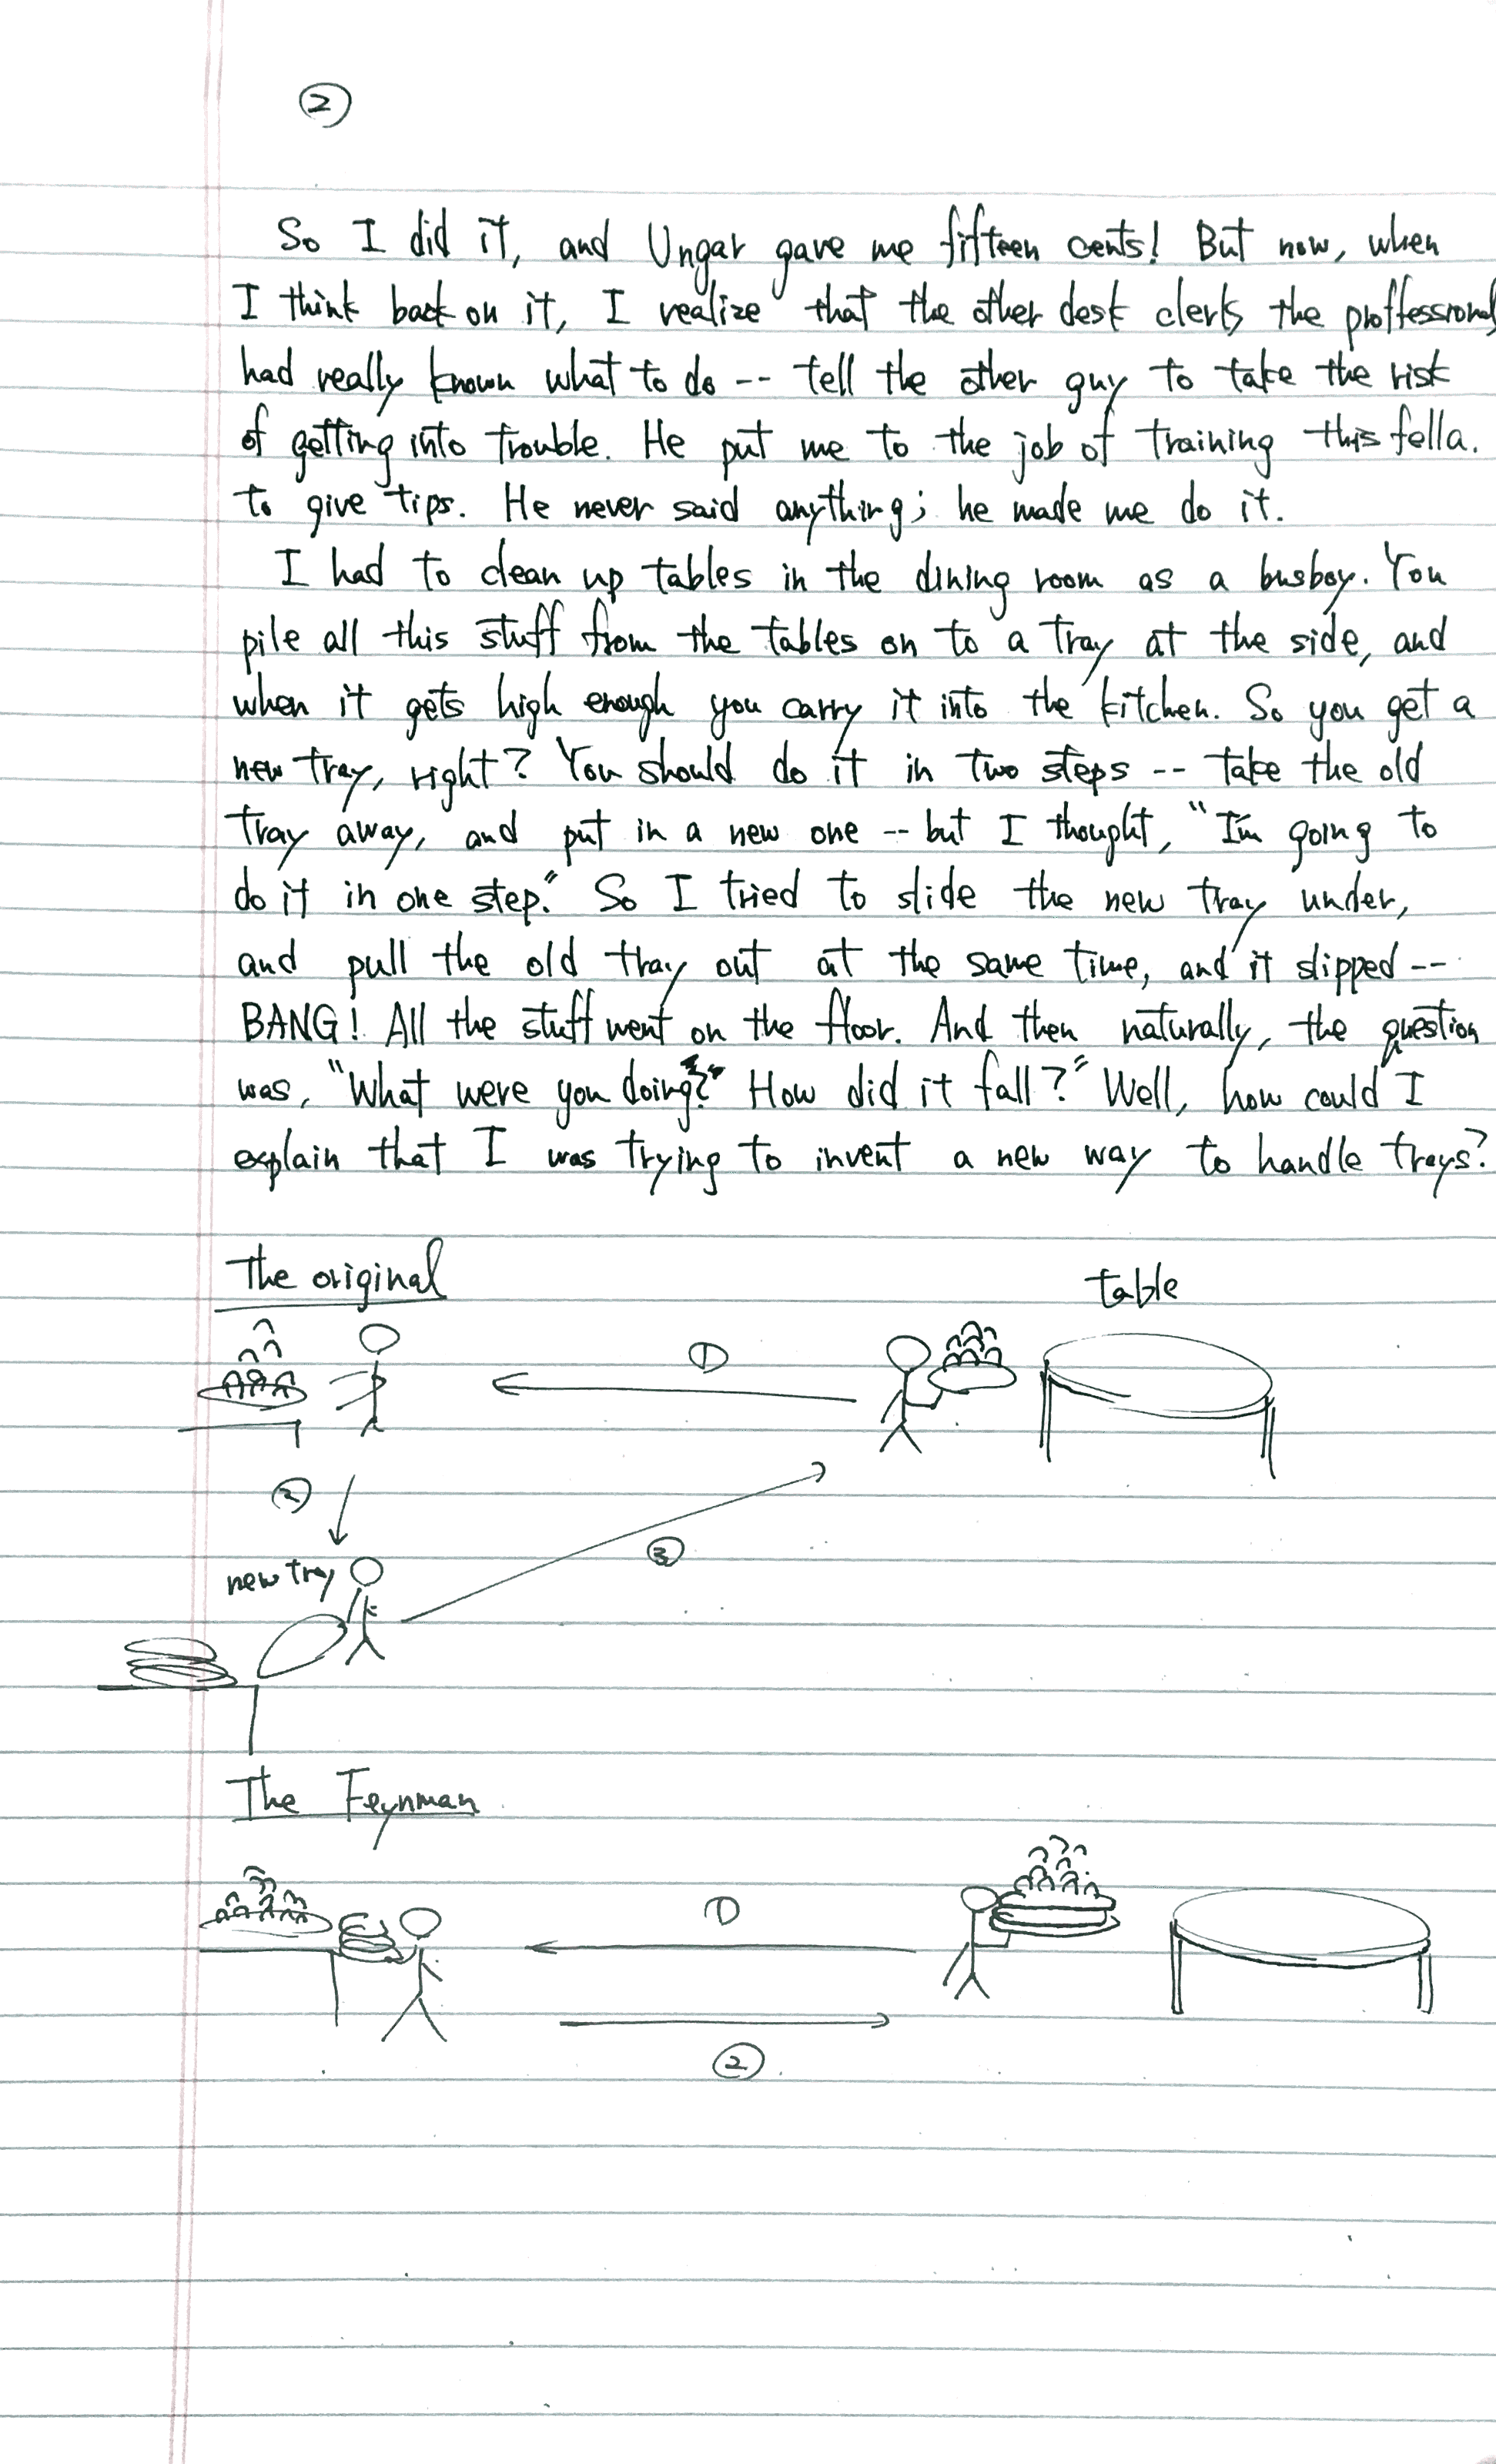 ②
So I did it, and Ungar gave me fifteen cents! But now, when
I think back on it, I realize that the other desk clerk, the proffessional
had really known what to do -- tell the other guy to take the risk
of getting into trouble. He put me to the job of training this fella.
to give tips. He never said anything; he made me do it.
I had to clean up tables in the dining room as a busboy. You
pile all this stuff from the tables on to a tray at the side, and
when it gets high enough you carry it into the kitchen. So you get a
new tray, right? You should do it in two steps -- take the old
tray away, and put in a new one -- but I thought, "I'm going to
do it in one step." So I tried to slide the new tray under,
and pull the old tray out at the same time, and it slipped --
BANG! All the stuff went on the floor. And then naturally, the question
was, "What were you doing? How did it fall?" Well, how could I
explain that I was trying to invent a new way to handle trays?
The original
table
①
②
③
new tray
The Feynman
①
②